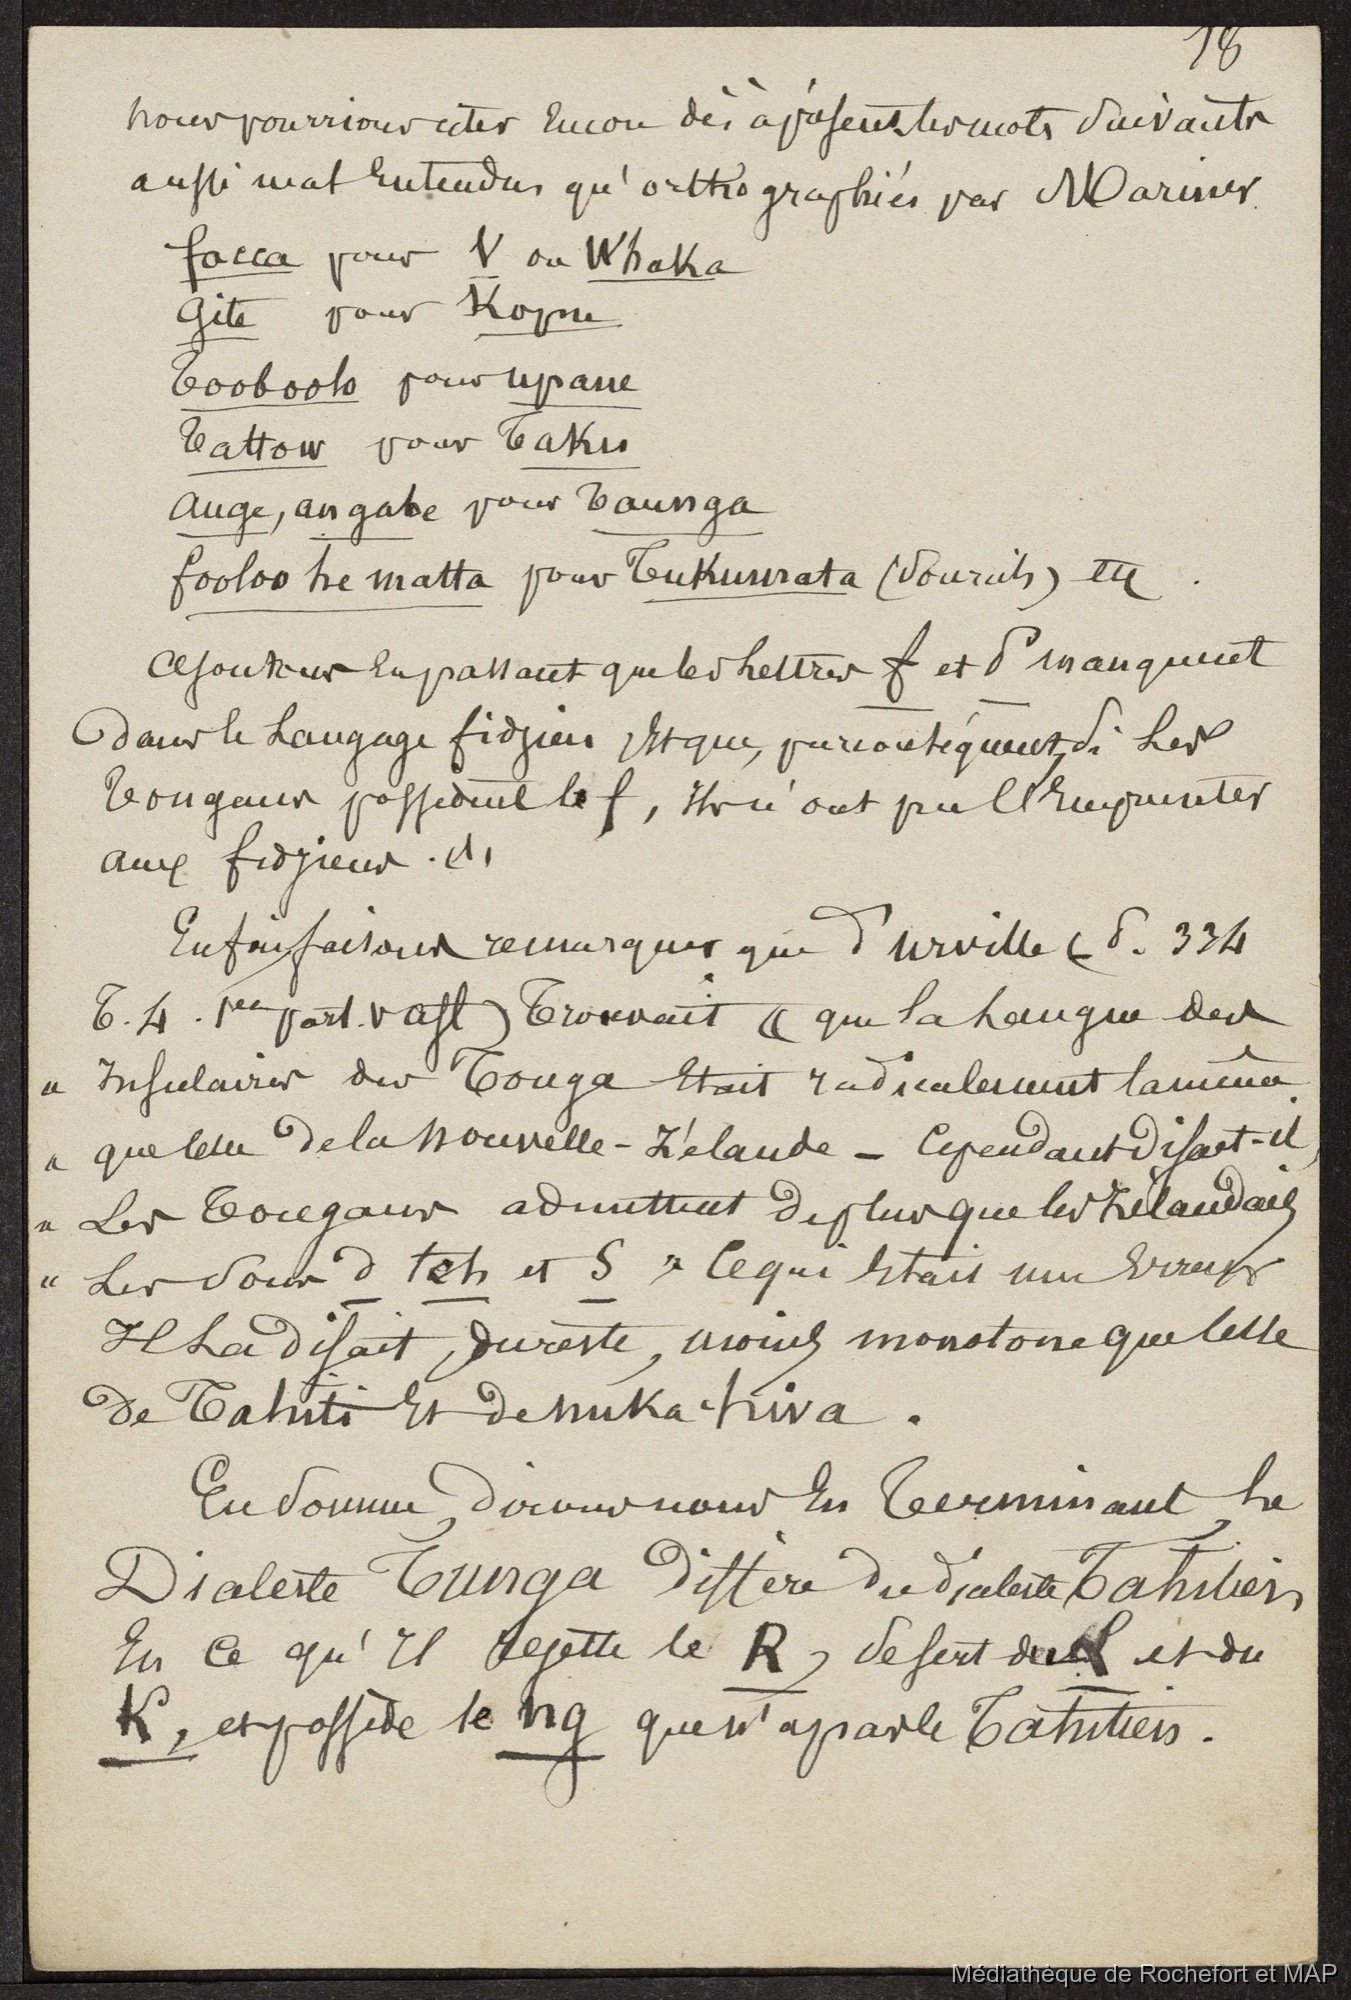 18
nous pourrions citer Encore dès à présent les mots suivants
aussi mal Entendus qu'orthographiés par Mariner
facca pour V ou Whaka
Gite pour Kopu
Tooboolo pour upane
Tattow pour Taku
auge, angabe pour Taunga
fooloo he matta pour Tukumata (sourcils) etc
ajoutons En passant que les lettres f et s manquent
dans le Langage fidzien Et que, par conséquent, si Les
Tongans possèdent le f, Ils n'ont pu l'Emprunter
aux fidziens.
Enfin faisons remarquer que d'urville (p. 334
T. 4. 1ere part. v ast) Trouvait « que la Langue des
" Insulaires de Tonga Etait radicalement la même
" que celle de la nouvelle-Zélande – Cependant disait-il,
" Les Tongans admettent de plus que les Zélandais
" Les sons d tch et S » Ce qui Etait une Erreur
Il La disait, du reste, moins monotone que Celle
de Tahiti Et de nuka-hiva.
En somme, dirons nous En Terminant, Le
Dialecte Tunga diffère du dialecte Tahitien
En Ce qu'Il rejette le R, se sert du L et du
K, et possède le ng que n'a pas le Tahitien.
Médiathèque de Rochefort et MAP